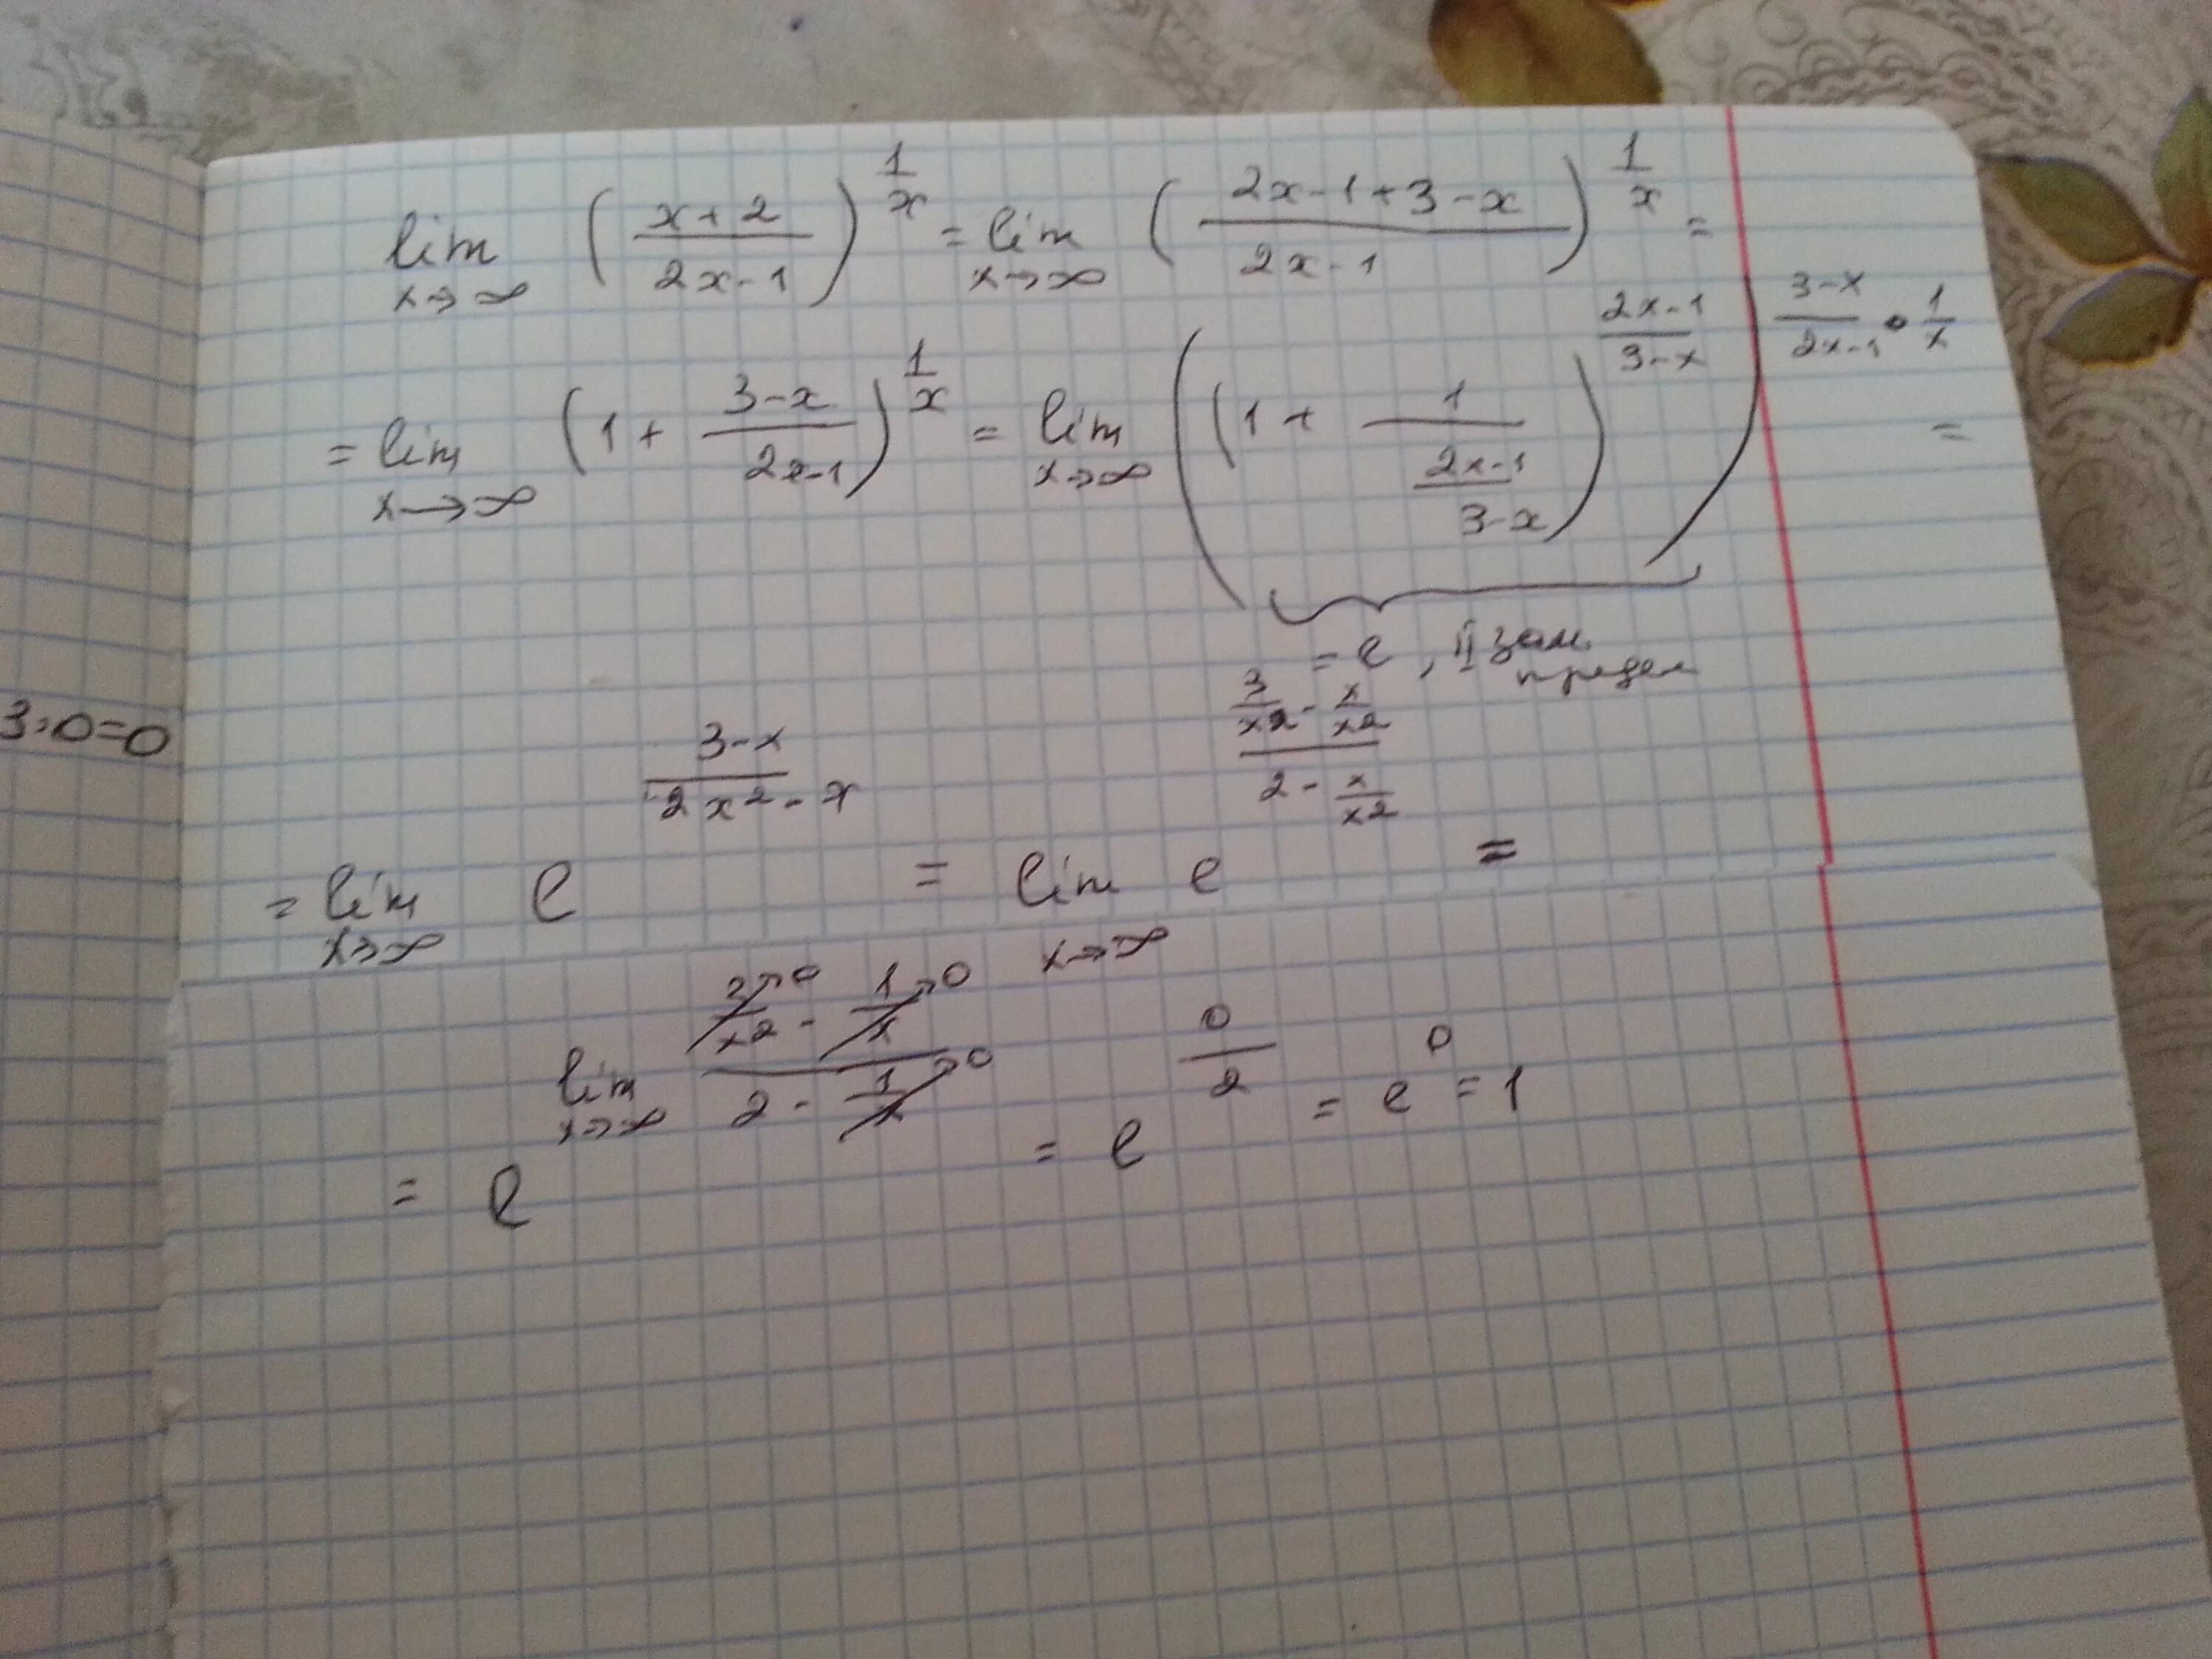 lim x→∞ ((x+2)/(2x-1))^(1/x) = lim x→∞ ((2x-1+3-x)/(2x-1))^(1/x) =
= lim x→∞ (1 + (3-x)/(2x-1))^(1/x) = lim x→∞ ((1 + 1/((2x-1)/(3-x)))^((2x-1)/(3-x)))^((3-x)/(2x-1) · 1/x) =
= e, II зам. предел
3·0=0
= lim x→∞ e^((3-x)/(2x²-x)) = lim x→∞ e^((3/x² - x/x²)/(2 - x/x²)) =
= e^(lim x→∞ (3/x²→0 - 1/x→0)/(2 - 1/x→0)) = e^(0/2) = e^0 = 1